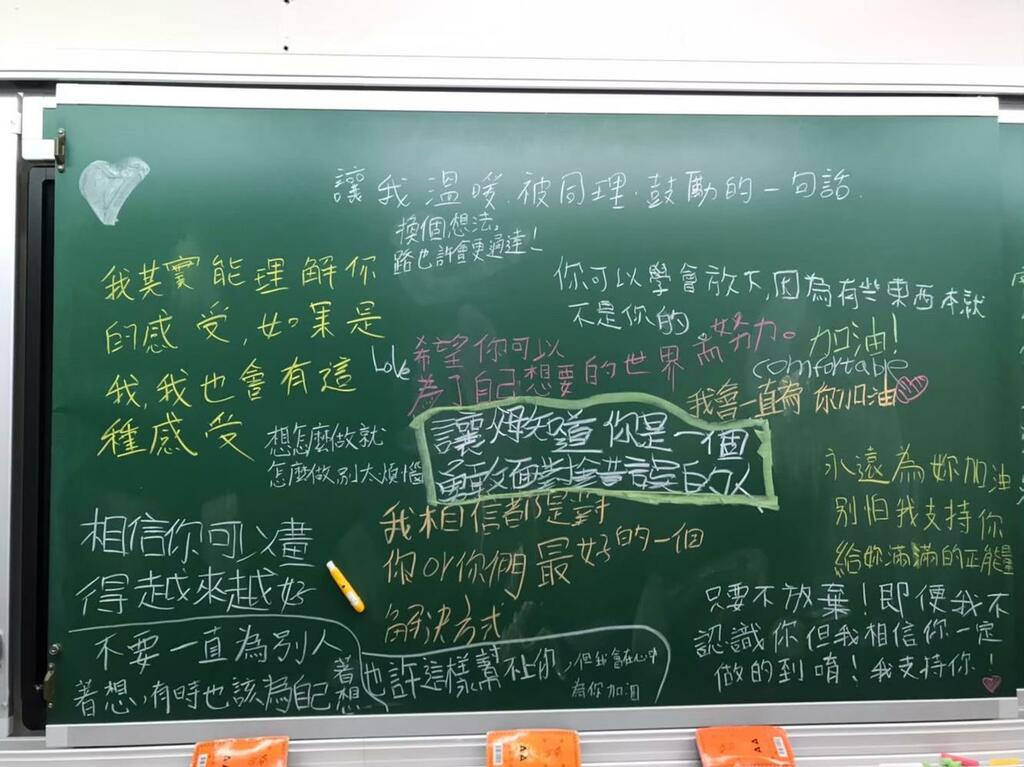 讓我溫暖.被同理.鼓勵的一句話.
換個想法,
路也許會更通達!
我其實能理解你
的感受,如果是
我,我也會有這
種感受
你可以學會放下,因為有些東西本就
不是你的
Love
希望你可以
為了自己想要的世界而努力。
加油!
comfortable
我會一直為你加油
想怎麼做就
怎麼做,別太煩惱
讓我知道你是一個
勇敢面對錯誤的人
永遠為妳加油
別怕我支持你
給妳滿滿的正能量
相信你可以畫
得越來越好
我相信都是對
你or你們最好的一個
解決方式
只要不放棄!即便我不
認識你但我相信你一定
做的到唷!我支持你!
不要一直為別人
著想,有時也該為自己著想
也許這樣幫不上你,但我會在心中
為你加油
AA
AA
AA